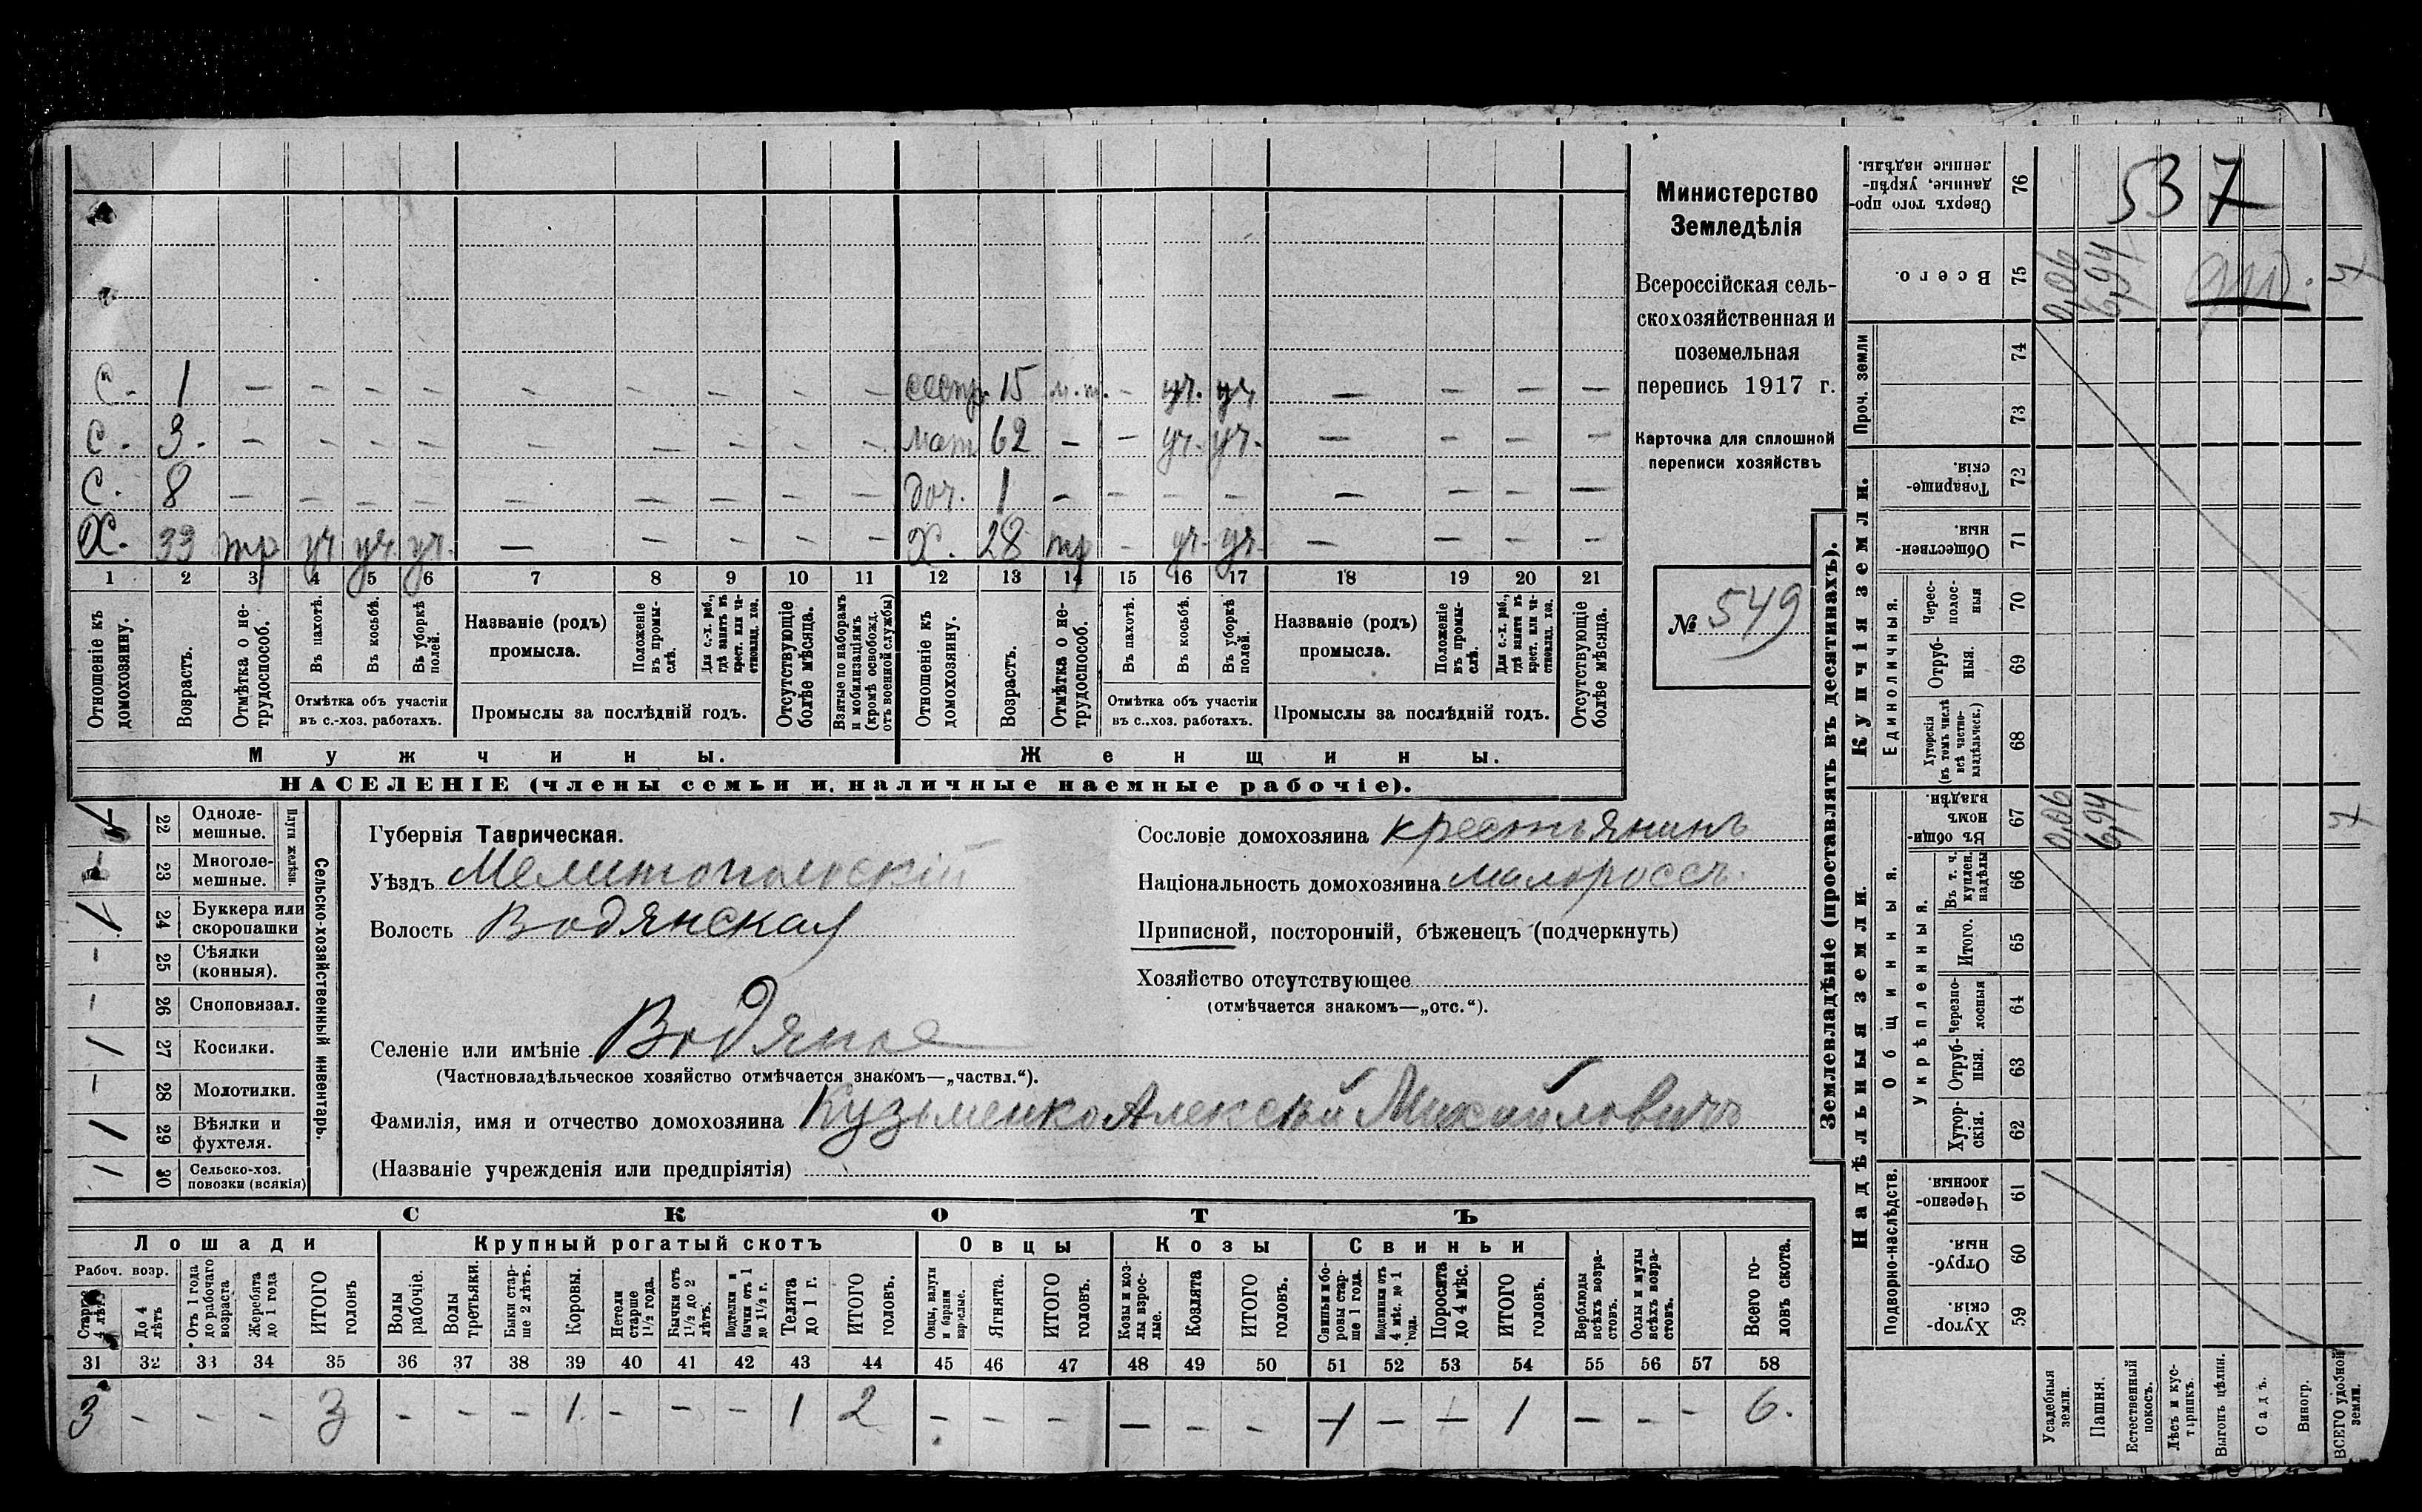 С. 1 – – – – – – – – – сестр. 15 – уч. уч – – – –
С. 3. – – – – – – – – – мат 62 – – уч. уч. – – – –
С. 8 – – – – – – – – – доч. 1 – – – – – – – –
Х. 33 тр уч уч уч. – – – – – Х. 28 тр – уч. уч. – – – –
1 2 3 4 5 6 7 8 9 10 11 12 13 14 15 16 17 18 19 20 21
Отношеніе къ домохозяину.
Возрастъ.
Отмѣтка о нетрудоспособ.
Въ пахотѣ.
Въ косьбѣ.
Въ уборкѣ полей.
Отмѣтка объ участіи
въ с.-хоз. работахъ.
Названіе (родъ)
промысла.
Положеніе въ промыслѣ.
Для с.-х. раб., гдѣ занятъ въ крест. или частновлад. хоз.
Промыслы за послѣдній годъ.
Отсутствующіе болѣе мѣсяца.
Взятые по наборамъ и мобилизаціямъ (кромѣ освобожд. отъ военной службы)
Отношеніе къ домохозяину.
Возрастъ.
Отмѣтка о нетрудоспособ.
Въ пахотѣ.
Въ косьбѣ.
Въ уборкѣ полей.
Отмѣтка объ участіи
въ с..хоз. работахъ.
Названіе (родъ)
промысла.
Положеніе въ промыслѣ.
Для с.-х. раб., гдѣ занята въ крест. или частновлад. хоз.
Промыслы за послѣдній годъ.
Отсутствующіе болѣе мѣсяца.
Мужчины. Женщины.
НАСЕЛЕНІЕ (члены семьи и наличные наемные рабочіе).
Министерство
Земледѣлія
Всероссійская сель-
скохозяйственная и
поземельная
перепись 1917 г.
Карточка для сплошной
переписи хозяйствъ
№ 549
Сельско-хозяйственный инвентарь.
Плуги желѣзн.
22 Одноле-
мешные.
23 Многоле-
мешные.
24 Буккера или
скоропашки
– 25 Сѣялки
(конныя).
– 26 Сноповязал.
1 27 Косилки.
– 28 Молотилки.
1 29 Вѣялки и
фухтеля.
1 30 Сельско-хоз.
повозки (всякія)
Губернія Таврическая.
Уѣздъ Мелитопольскій
Волость Водянская
Селеніе или имѣніе Водяное
(Частновладѣльческое хозяйство отмѣчается знакомъ—„частвл.“).
Фамилія, имя и отчество домохозяина Кузьменко Алексѣй Михайловичъ
(Названіе учрежденія или предпріятія)
Сословіе домохозяина крестьянинъ
Національность домохозяина малороссъ.
Приписной, посторонній, бѣженецъ (подчеркнуть)
Хозяйство отсутствующее
(отмѣчается знакомъ—„отс.“).
СКОТЪ
Лошади Крупный рогатый скотъ Овцы Козы Свиньи
Рабоч. возр.
Старше 4 лѣтъ
До 4 лѣтъ
Отъ 1 года до рабочаго возраста
Жеребята до 1 года
ИТОГО головъ
Волы рабочіе.
Волы третьяки.
Быки старше 2 лѣтъ.
Коровы.
Нетели старше 1½ года.
Бычки отъ 1½ до 2 лѣтъ.
Подтелки и бычки отъ 1 до 1½ г.
Телята до 1 г.
ИТОГО головъ.
Овцы, валухи и бараны взрослые.
Ягнята.
ИТОГО головъ.
Козы и козлы взрослые.
Козлята
ИТОГО головъ.
Свиньи и боровы старше 1 года.
Подсвинки отъ 4 мѣс. до 1 года.
Поросята до 4 мѣс.
ИТОГО головъ.
Верблюды всѣхъ возрастовъ.
Ослы и мулы всѣхъ возрастовъ.
Всего головъ скота.
31 32 33 34 35 36 37 38 39 40 41 42 43 44 45 46 47 48 49 50 51 52 53 54 55 56 57 58
3 – – – 3 – – – 1 – – – 1 2 – – – – – – 1 – – 1 – – – 6.
Землевладѣніе (проставлять въ десятинахъ).
Купчія земли.
Надѣльныя земли.
Сверхъ того проданные, укрѣпленные надѣлы. 76
537
Всего. 75 0,06 6,94
Проч. земли 74 73
Товарищескія. 72
Общественныя. 71
Единоличныя.
Чересполосныя 70
Отрубныя. 69
Хуторскія (въ томъ числѣ всѣ частновладѣльческ.) 68
Общинныя.
Въ общиномъ владѣн. 67 0,06 6,94
Укрѣпленныя.
Въ т. ч. куплен. надѣлы 66
Итого. 65
Черезполосныя 64
Отрубныя. 63
Хуторскія. 62
Подворно-наслѣдств.
Черезполосныя. 61
Отрубныя. 60
Хуторскія. 59
Усадебныя земли.
Пашня.
Естественный покосъ.
Лѣсъ и кустарникъ.
Выгонъ цѣлин.
Садъ.
Виногр.
ВСЕГО удобной земли.